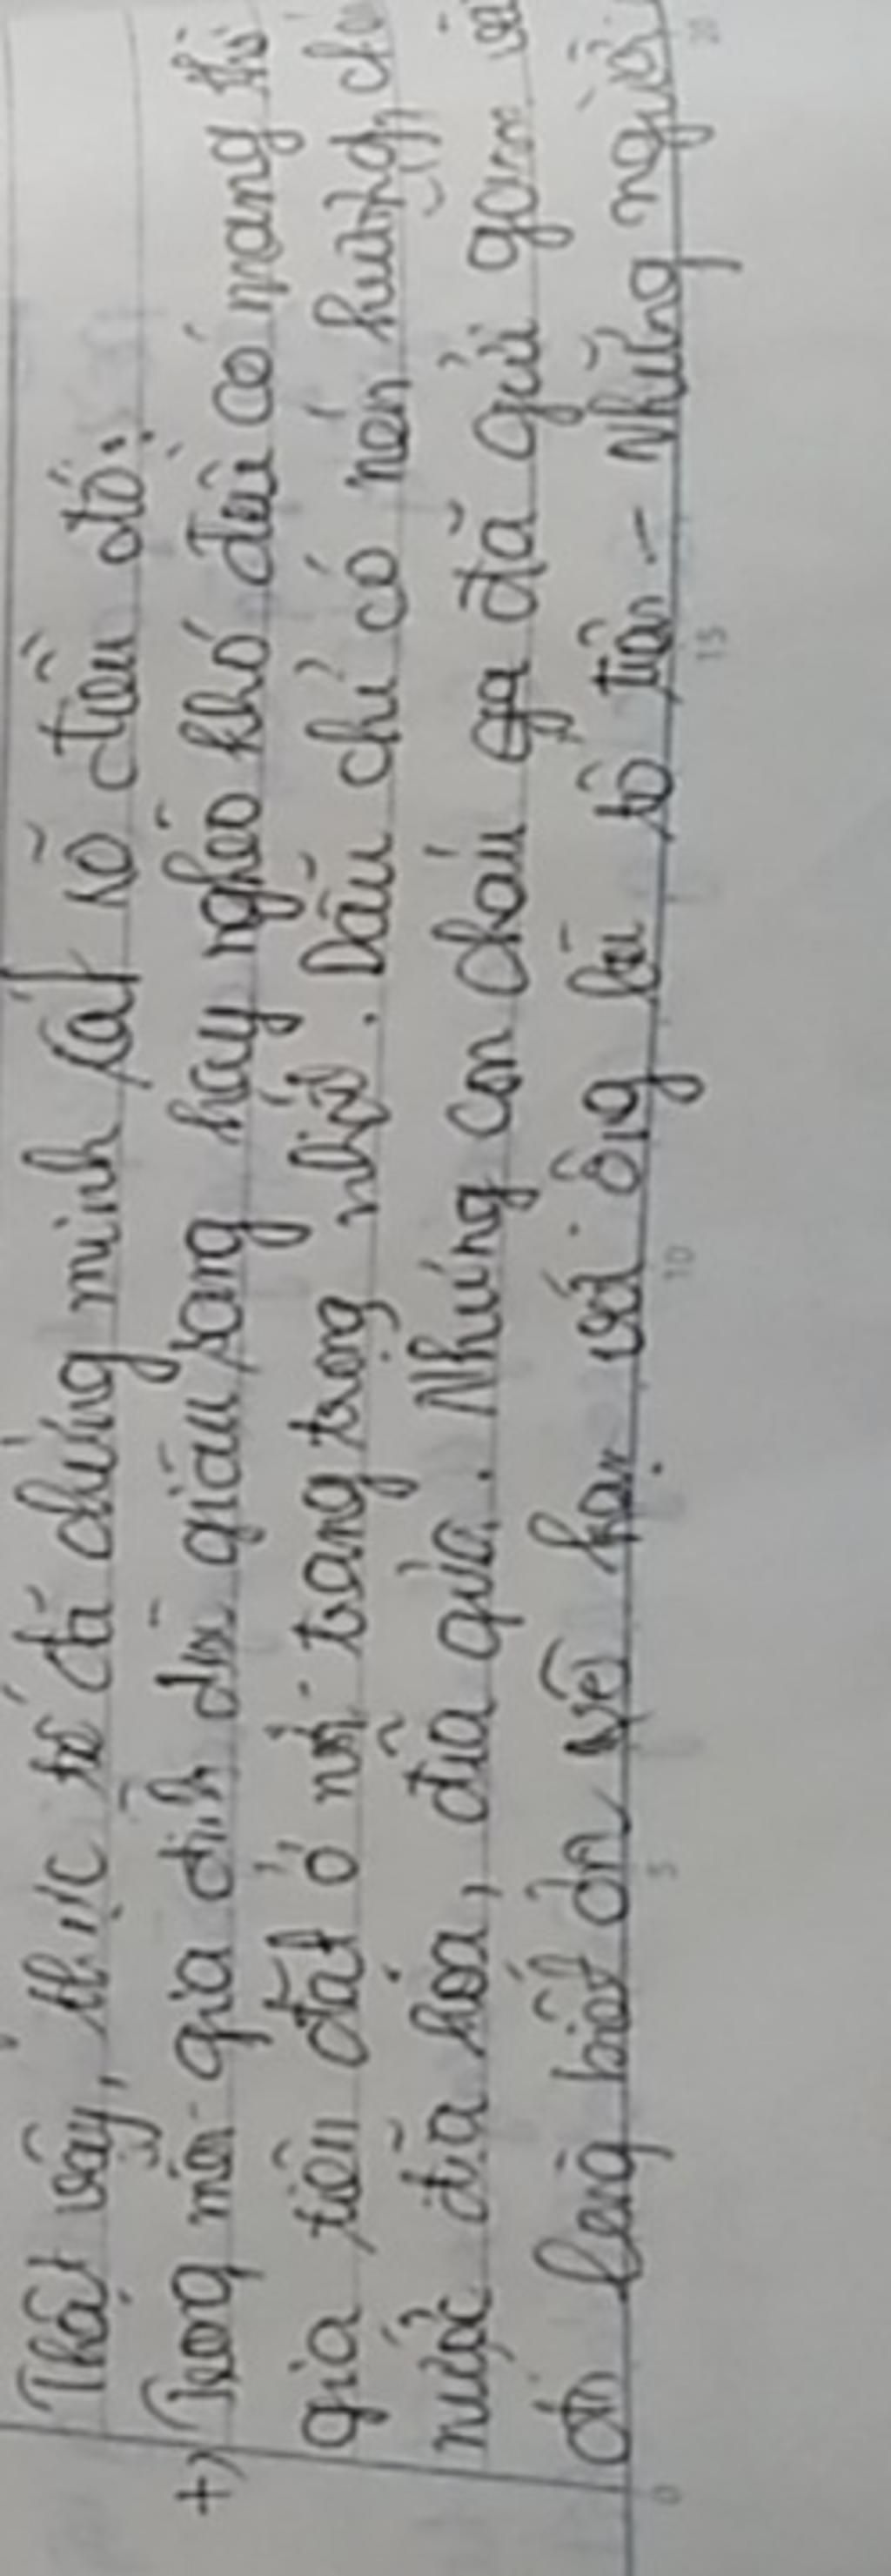 Thật vậy, thực tế đã chứng minh rất rõ điều đó:
+) Trong mỗi gia đình dù giàu sang hay nghèo khó đều có mang thờ
gia tiên đặt ở nơi trang trọng nhất. Dẫu chỉ có nén hương, ché
nước đĩa hoa, đĩa quả. Nhưng con cháu đã gửi gắm vài
ơn lòng biết ơn vô hạn với ông bà tổ tiên - Những người
0 5 10 15 20